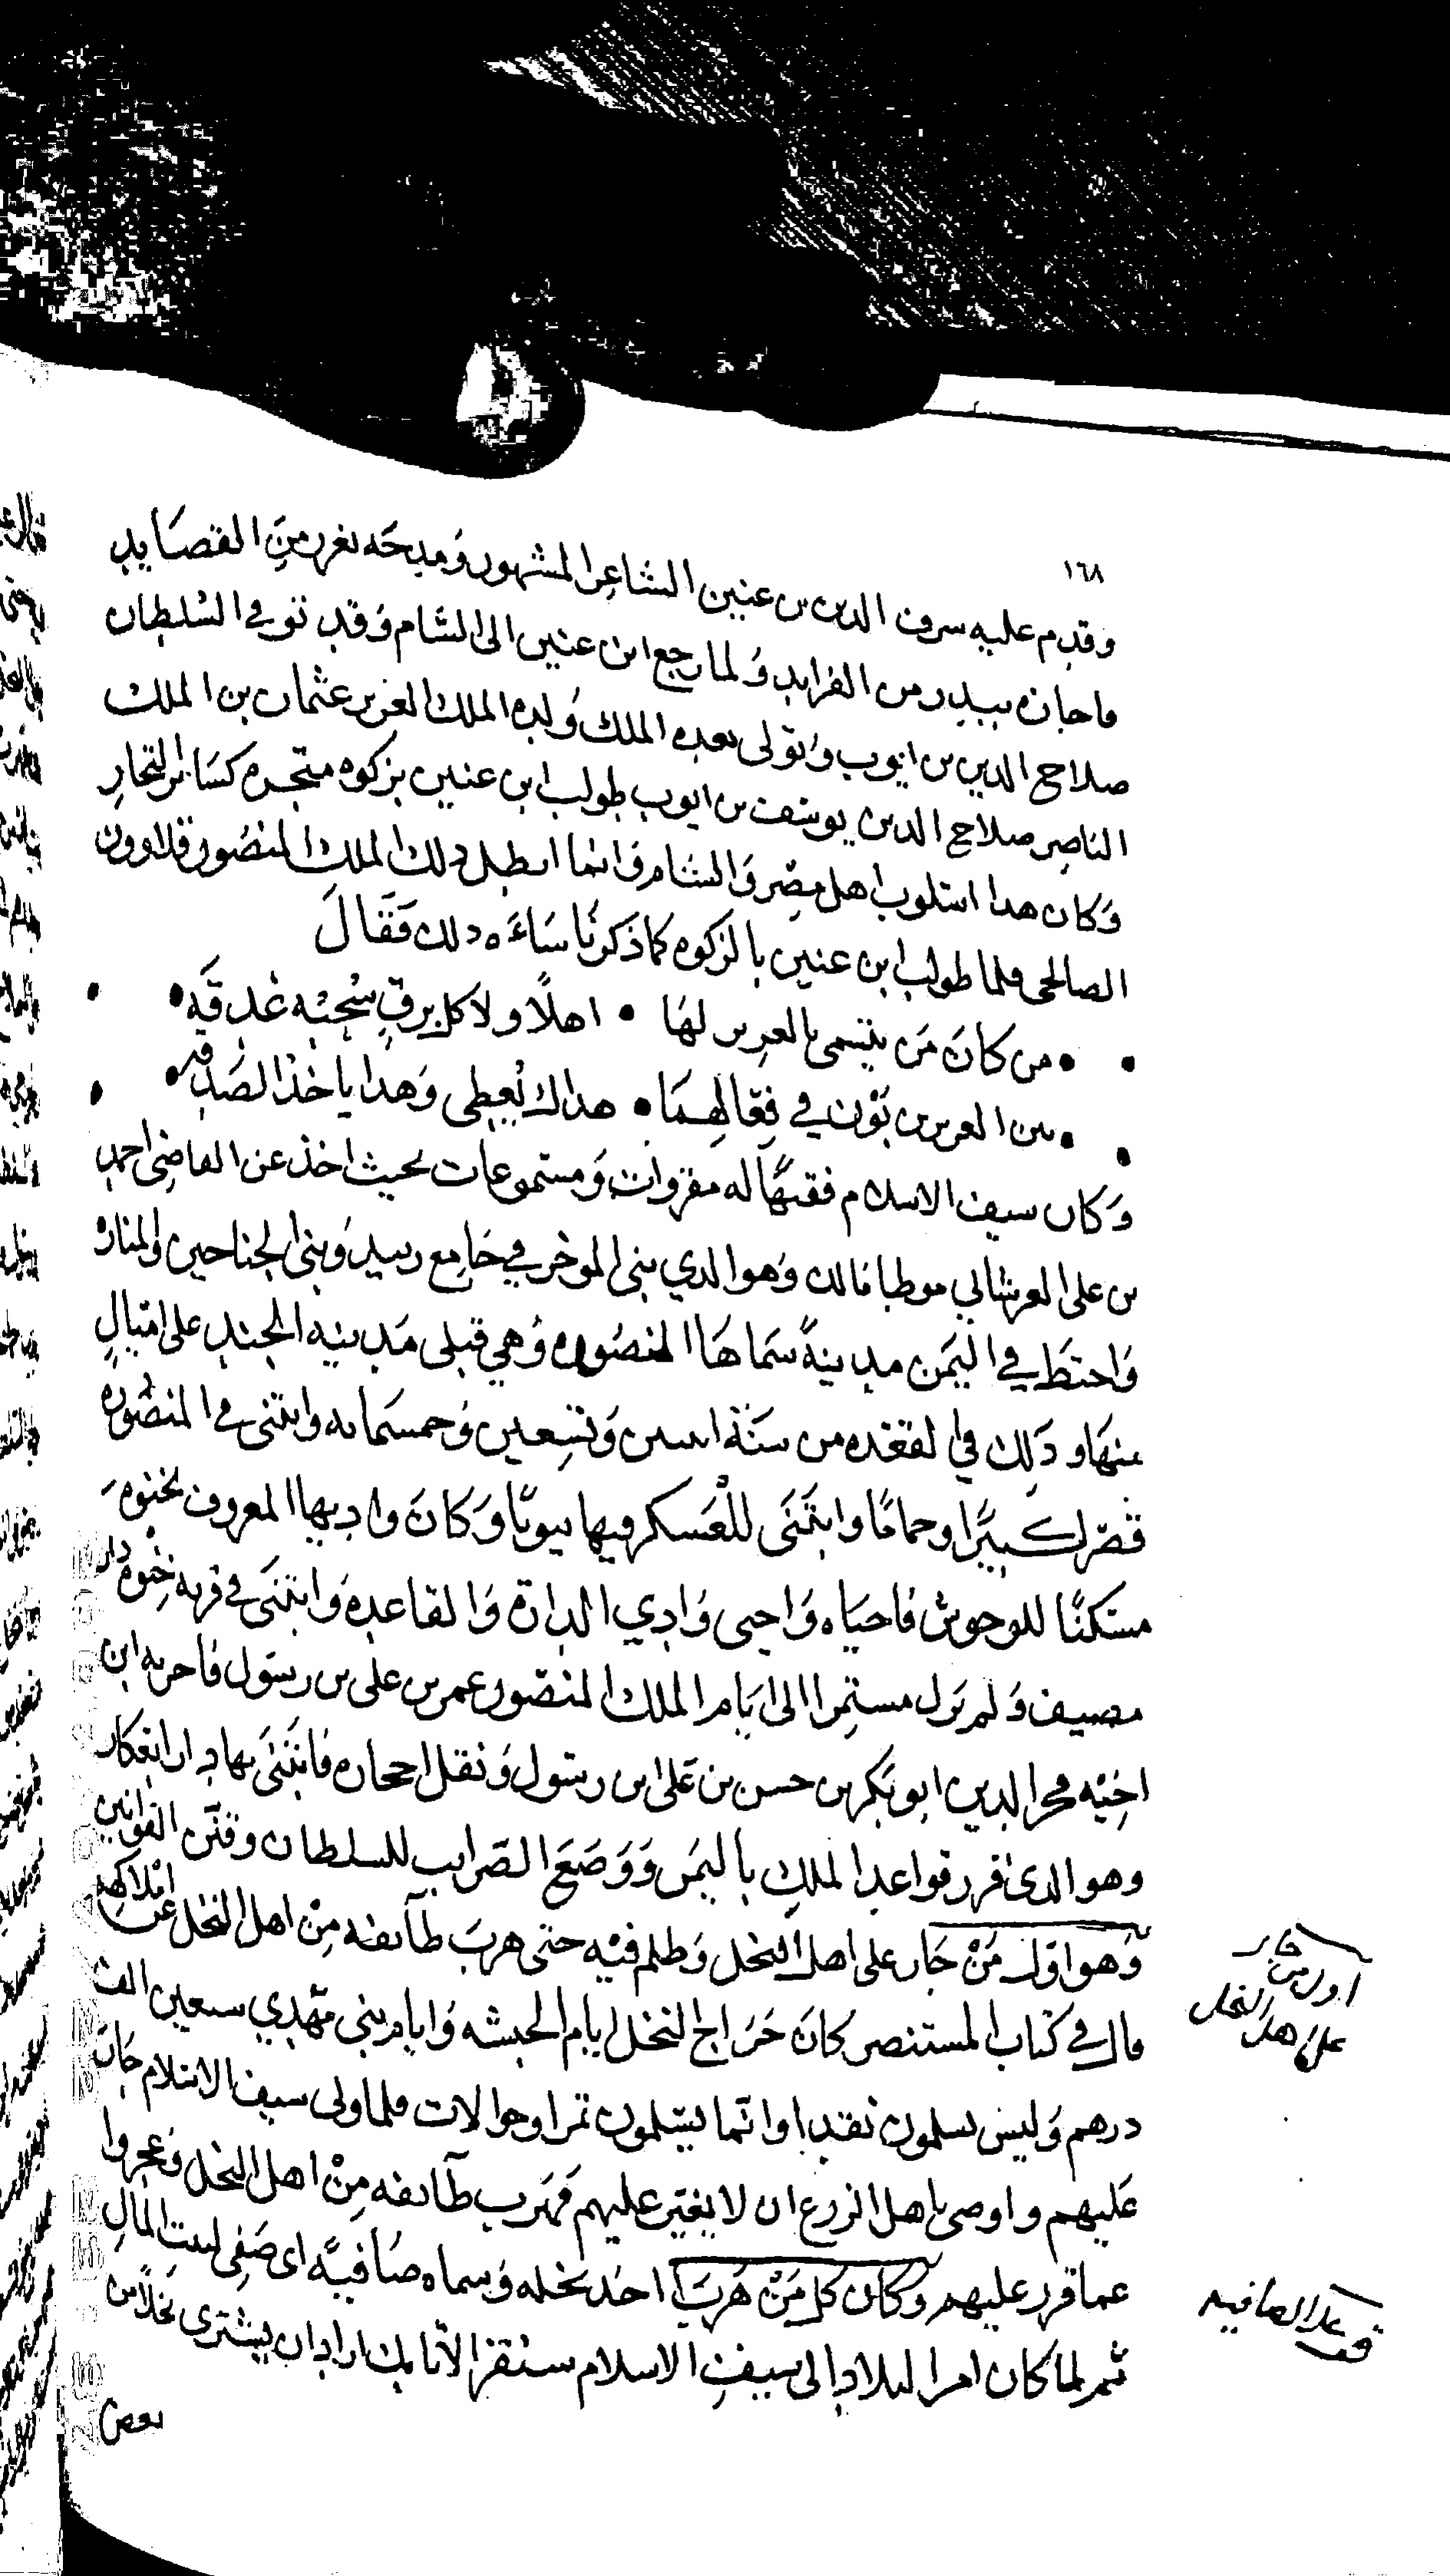 ١٦٨
وقدم عليه سرف الدين بن عنين الشاعر المشهور ومدحه بغرر من القصايد
فاجازه ببدر من الفرايد ولما رجع ابن عنين الى الشام وقد توفي السلطان
صلاح الدين بن ايوب وتولى بعده الملك ولده الملك العزيز عثمان بن الملك
الناصر صلاح الدين يوسف بن ايوب طولب ابن عنين بزكوه متجره كسائر التجار
وكان هدا اسلوب اهل مصر والشام وانما ابطل دلك الملك المنصور قلاوون
الصالحى فلما طولب ابن عنين بالزكوه كما ذكرنا ساءه دلك فقال
من كان من يتسمى بالعزيز لها • اهلا ولا كل برق سحبه غدقه
بين العزيزين بون في فعالهما • هداك يعطى وهدا ياخذ الصدقه
وكان سيف الاسلام فقيها له مقروات ومستموعات بحيث اخذ عن القاضي احمد
بن على العرشاني موطا مالك وهو الدي بنى الموخر في جامع زبيد وبنى الجناحين والمناره
واختط في اليمن مدينة سماها المنصوره وهي قبلى مدينه الجند على اميال
منها و دلك في القعده من سنة اثنين وتسعين وخمسمايه وابتنى في المنصوره
قصرا كبيرا وحماما وابتنى للعسكر فيها بيوتا وكان واديها المعروف بخنوه
مسكنا للوحوش فاحياه واحيى وادي الدارة والقاعده وابتنى في قريه خنوه دار
مصيف ولم تزل مستمرا الى ايام الملك المنصور عمر بن على بن رسول فاخربه ابن
اخيه فخر الدين ابو بكر بن حسن بن على بن رسول ونقل احجاره فابتنى بها دارا بعكار
وهو الدى قرر قواعد الملك باليمن ووضع الضرايب للسلطان وقنن القوانين
وهو اول من جار على اهل النخل وظلم فيه حتى هرب طآئفه من اهل النخل عن املاكهم
قال في كتاب المستنصر كان خراج النخل ايام الحبشه وايام بني مهدي سبعين الف
درهم وليس يسلمون نقدا وانما يسلمون تمرا وحوالات فلما ولى سيف الاسلام جار
عليهم واوصى باهل الزرع ان لا يغير عليهم فهرب طآئفه من اهل النخل وعجزوا
عما قرر عليهم وكان كل من هرب اخد نخله وسماه صافيه اى صفى لبيت المال
ثم لما كان امر البلاد الى سيف الاسلام سنقر الاتابك اراد ان يشترى نخلا من
بعض
اول من جار
على اهل النخل
قف على الصافيه